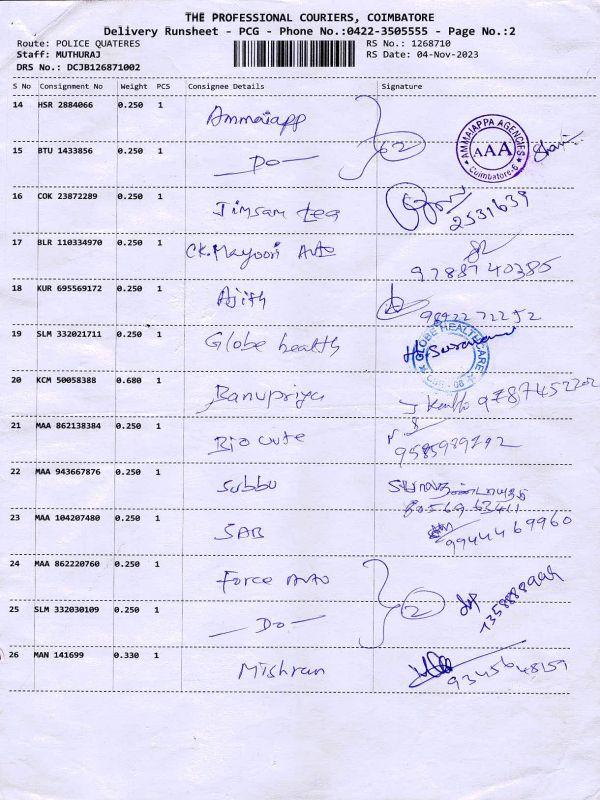 THE PROFESSIONAL COURIERS, COIMBATORE
Delivery Runsheet - PCG - Phone No.:0422-3505555 - Page No.:2
Route: POLICE QUATERES RS No.: 1268710
Staff: MUTHURAJ RS Date: 04-Nov-2023
DRS No.: DCJB126871002
S No Consignment No Weight PCS Consignee Details Signature
14 HSR 2884066 0.250 1 Ammaiapp
AMMAIAPPA AGENCIES AAA Coimbatore-6
15 BTU 1433856 0.250 1 —Do— 2
16 COK 23872289 0.250 1 Jimsam tea 2531639
17 BLR 110334970 0.250 1 CK.Mayoori Auto 9788740385
18 KUR 695569172 0.250 1 Ajith 9842272252
19 SLM 332021711 0.250 1 Globe health
GLOBE HEALTH CARE CBE-08
20 KCM 50058388 0.680 1 Banupriya 9787452202
21 MAA 862138384 0.250 1 Bio cute 9585989292
22 MAA 943667876 0.250 1 Subbu
23 MAA 104207480 0.250 1 SAB 9944469960
24 MAA 862220760 0.250 1 Force Auto
25 SLM 332030109 0.250 1 —Do— 2 7358888999
26 MAN 141699 0.330 1 Mishran 9345648159